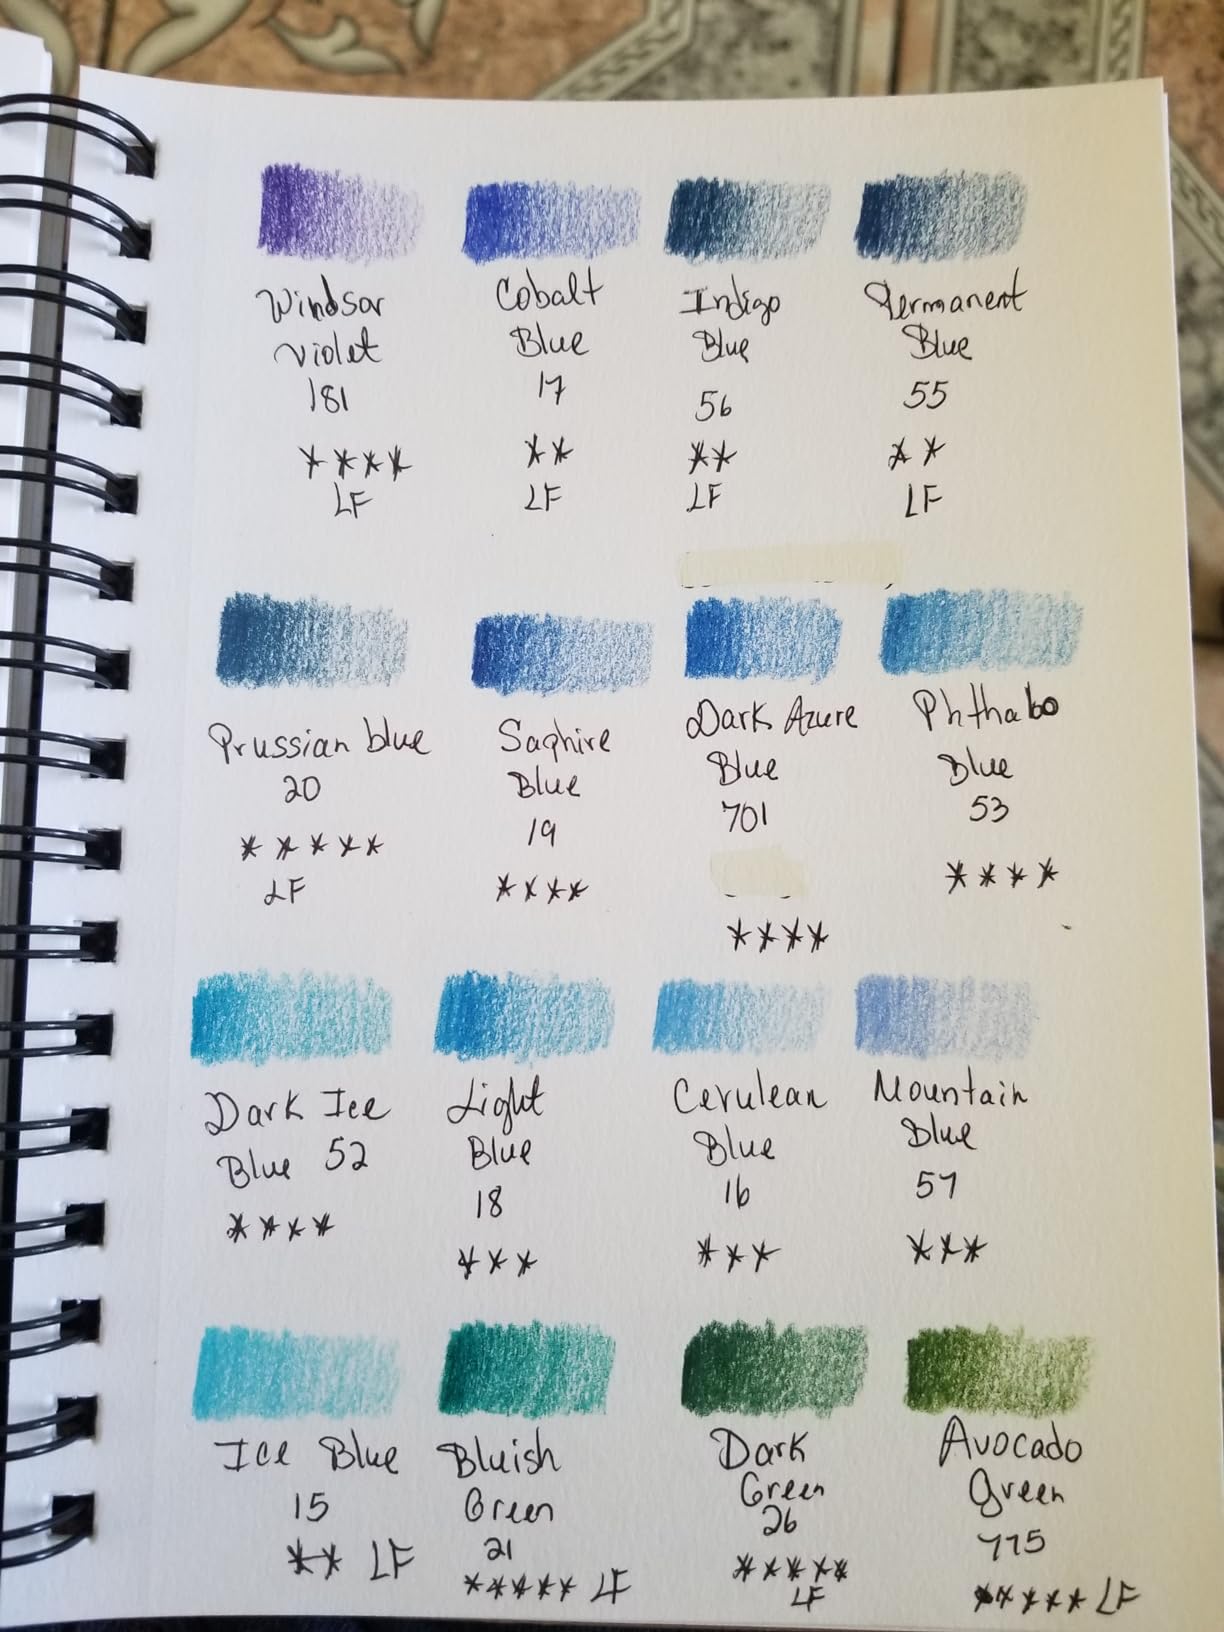 Windsor
Violet
181
****
LF
Cobalt
Blue
17
**
LF
Indigo
Blue
56
**
LF
Permanent
Blue
55
**
LF
Prussian blue
20
*****
LF
Saphire
Blue
19
****
Dark Azure
Blue
701
****
Phthabo
Blue
53
****
Dark Ice
Blue 52
****
Light
Blue
18
***
Cerulean
Blue
16
***
Mountain
Blue
57
***
Ice Blue
15
** LF
Bluish
Green
21
***** LF
Dark
Green
26
*****
LF
Avocado
green
775
***** LF